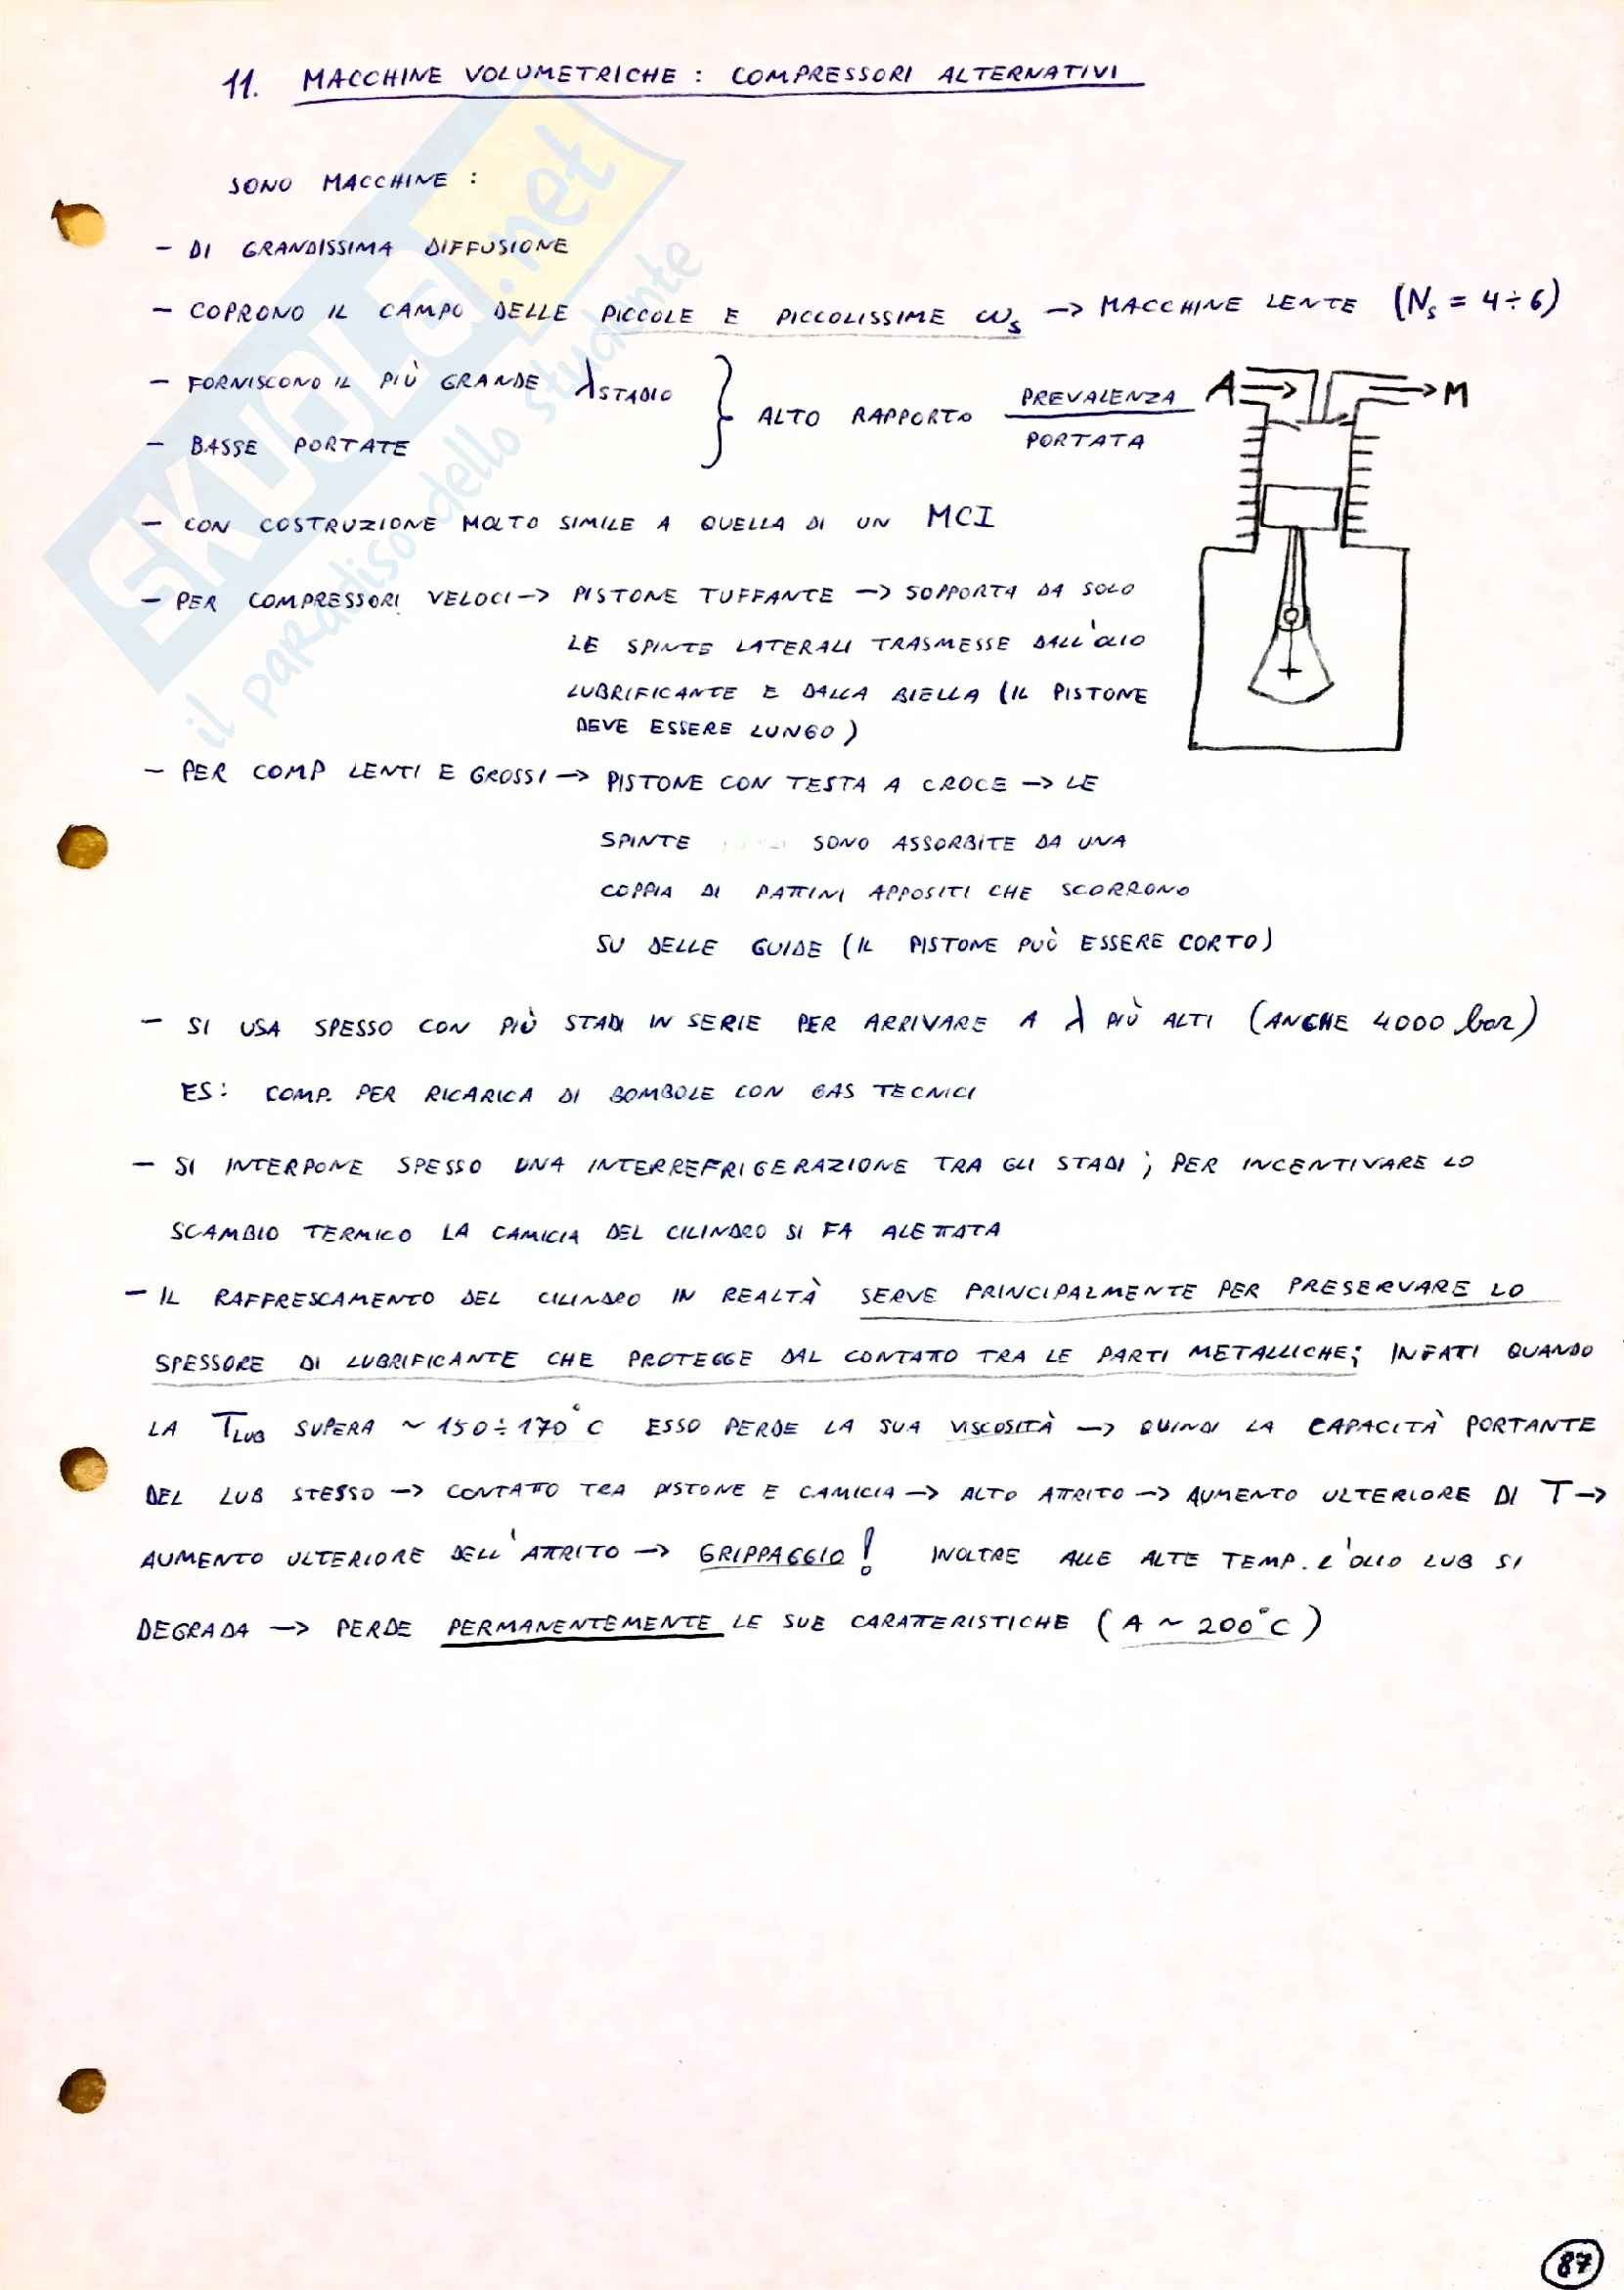 11. MACCHINE VOLUMETRICHE : COMPRESSORI ALTERNATIVI
SONO MACCHINE :
- DI GRANDISSIMA DIFFUSIONE
- COPRONO IL CAMPO DELLE PICCOLE E PICCOLISSIME ωs -> MACCHINE LENTE (Ns = 4÷6)
- FORNISCONO IL PIÙ GRANDE λSTADIO
- BASSE PORTATE
} ALTO RAPPORTO PREVALENZA
PORTATA
A M
- CON COSTRUZIONE MOLTO SIMILE A QUELLA DI UN MCI
- PER COMPRESSORI VELOCI -> PISTONE TUFFANTE -> SOPPORTA DA SOLO
LE SPINTE LATERALI TRASMESSE DALL'OLIO
LUBRIFICANTE E DALLA BIELLA (IL PISTONE
DEVE ESSERE LUNGO)
- PER COMP LENTI E GROSSI -> PISTONE CON TESTA A CROCE -> LE
SPINTE SONO ASSORBITE DA UNA
COPPIA DI PATTINI APPOSITI CHE SCORRONO
SU DELLE GUIDE (IL PISTONE PUÒ ESSERE CORTO)
- SI USA SPESSO CON PIÙ STADI IN SERIE PER ARRIVARE A λ PIÙ ALTI (ANCHE 4000 bar)
ES: COMP. PER RICARICA DI BOMBOLE CON GAS TECNICI
- SI INTERPONE SPESSO UNA INTERREFRIGERAZIONE TRA GLI STADI ; PER INCENTIVARE LO
SCAMBIO TERMICO LA CAMICIA DEL CILINDRO SI FA ALETTATA
- IL RAFFRESCAMENTO DEL CILINDRO IN REALTÀ SERVE PRINCIPALMENTE PER PRESERVARE LO
SPESSORE DI LUBRIFICANTE CHE PROTEGGE DAL CONTATTO TRA LE PARTI METALLICHE; INFATI QUANDO
LA TLUB SUPERA ~ 150÷170°C ESSO PERDE LA SUA VISCOSITÀ -> QUINDI LA CAPACITÀ PORTANTE
DEL LUB STESSO -> CONTATTO TRA PISTONE E CAMICIA -> ALTO ATTRITO -> AUMENTO ULTERIORE DI T ->
AUMENTO ULTERIORE DELL'ATTRITO -> GRIPPAGGIO! INOLTRE ALLE ALTE TEMP. L'OLIO LUB SI
DEGRADA -> PERDE PERMANENTEMENTE LE SUE CARATTERISTICHE (A ~ 200°C)
87
SKUOLA.net
il paradiso dello studente